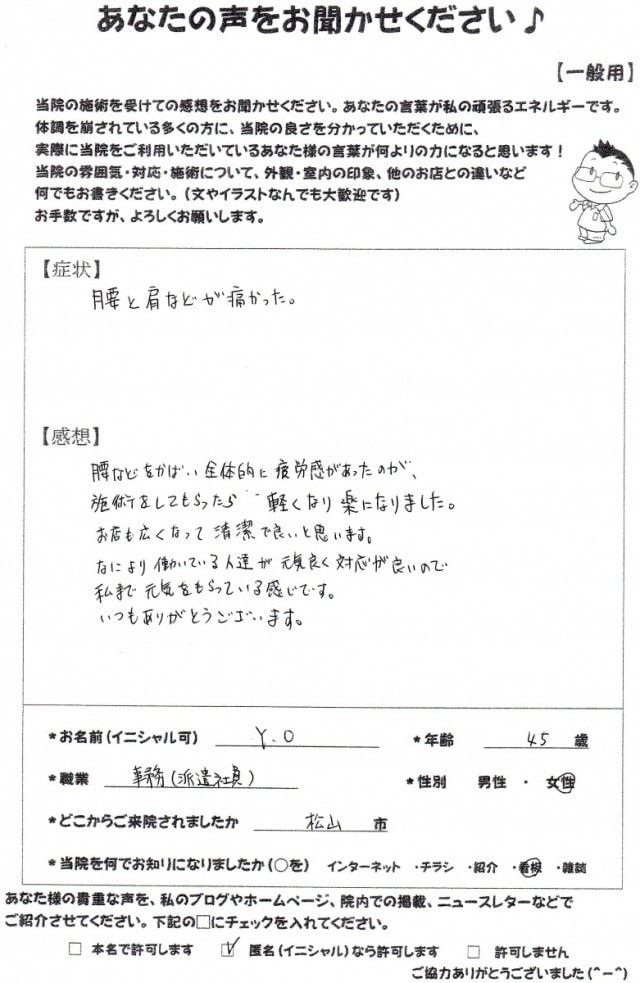 あなたの声をお聞かせください♪
【一般用】
当院の施術を受けての感想をお聞かせください。あなたの言葉が私の頑張るエネルギーです。
体調を崩されている多くの方に、当院の良さを分かっていただくために、
実際に当院をご利用いただいているあなた様の言葉が何よりの力になると思います！
当院の雰囲気・対応・施術について、外観・室内の印象、他のお店との違いなど
何でもお書きください。（文やイラストなんでも大歓迎です）
お手数ですが、よろしくお願いします。
【症状】
腰と肩などが痛かった。
【感想】
腰などをかばい全体的に疲労感があったのが、
施術をしてもらったら 軽くなり楽になりました。
お店も広くなって清潔で良いと思います。
なにより働いている人達が元気良く対応が良いので
私まで元気をもらっている感じです。
いつもありがとうございます。
*お名前（イニシャル可） Y.O *年齢 45 歳
*職業 事務（派遣社員） *性別 男性 ・ 女性
*どこからご来院されましたか 松山 市
*当院を何でお知りになりましたか（○を） インターネット ・チラシ ・紹介 ・看板 ・雑誌
あなた様の貴重な声を、私のブログやホームページ、院内での掲載、ニュースレターなどで
ご紹介させてください。下記の□にチェックを入れてください。
□ 本名で許可します ☑ 匿名（イニシャル）なら許可します □ 許可しません
ご協力ありがとうございました（^－^）